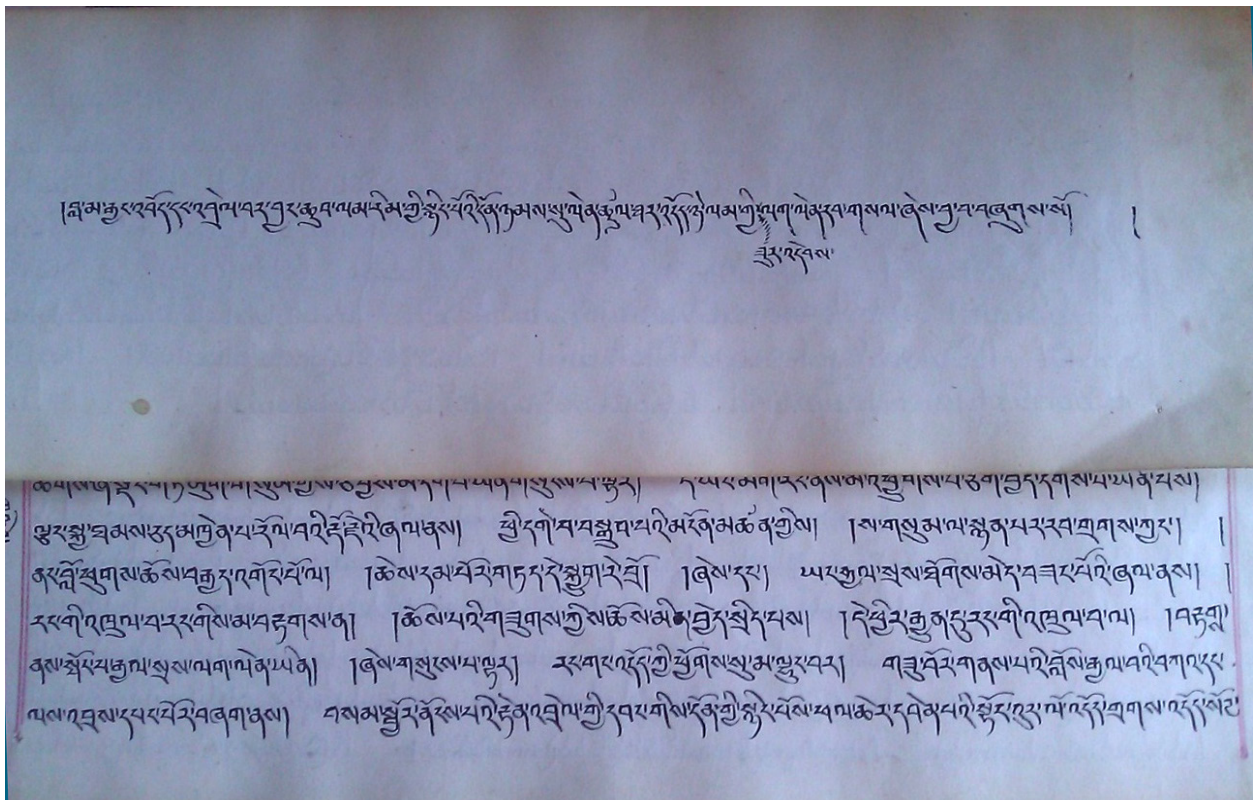 །བླ་མ་རྒྱང་འབོད་དང་འབྲེལ་བར་བྱང་ཆུབ་ལམ་རིམ་གྱི་སྙིང་པོའི་དོན་ཉམས་སུ་ལེན་ཚུལ་ཐར་འདོད་ལམ་གྱི་ལག་ལེན་རབ་གསལ་ཞེས་བྱ་བ་བཞུགས་སོ། །
ཟུར་འདེབས་
ལྟར་སྐྱ་ཐམས་ཅད་མཁྱེན་པ་རོལ་བའི་རྡོ་རྗེའི་ཞལ་ནས། ཕྱི་དགེ་བ་བསྒྲུབ་པའི་མངོན་མཚན་གྱིས། །ས་གསུམ་ལ་སྙན་པར་རབ་གྲགས་ཀྱང་། །
ནང་བློ་ཕུགས་ཆོས་བརྒྱད་འགོང་པོ་ལ། །ཆེས་དམ་པོར་གཏད་དེ་སྐྱུག་རེ་བྲོ། །ཞེས་དང་། ཡང་རྒྱལ་སྲས་ཐོགས་མེད་བཟང་པོའི་ཞལ་ནས། །
རང་གི་འཁྲུལ་བ་རང་གིས་མ་བརྟགས་ན། །ཆོས་པའི་གཟུགས་ཀྱིས་ཆོས་མིན་བྱེད་སྲིད་པས། །དེ་ཕྱིར་རྒྱུན་དུ་རང་གི་འཁྲུལ་བ་ལ། །བརྟགས་
ནས་སྤོང་བ་རྒྱལ་སྲས་ལག་ལེན་ཡིན། །ཞེས་གསུངས་པ་ལྟར། རང་གང་འདོད་ཀྱི་ཕྱོགས་སུ་མ་ལྷུང་བར། གཟུ་བོར་གནས་པའི་བློས་རྒྱལ་བའི་བཀའ་དང་
ལས་འབྲས་དཔང་པོར་བཞག་ནས། བསམ་སྦྱོར་ནོངས་པའི་རྟེན་འབྲེལ་གྱི་དབང་གིས་དོན་གྱི་སྙིང་པོས་ཕལ་ཆེར་དབེན་པའི་